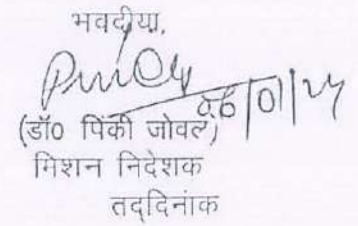 भवदीया,
06/01/25
(डॉ० पिंकी जोवल)
मिशन निदेशक
तद्दिनांक